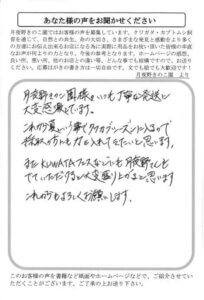 あなた様の声をお聞かせください
月夜野きのこ園ではお客様の声を募集しています。クワガタ・カブトムシ飼
育を通じて、自然との共生、命の大切さ、さまざまな発見と感動をより多く
の方達にお伝え出来るお店になる為に実際に商品をお使い頂いた皆様の率直
なお声が今後の励みとなり、今後の参考となります。ホームページの感想、
良い所、悪い所、他のお店との違いなど、どんな事でも結構ですので、お送り
ください。応募はがきの書き方は一切自由です。文でも絵でも大歓迎です！
月夜野きのこ園 より
月夜野きのこ園様、いつも丁寧な発送に
大変感謝しています。
これから夏という事でクワガタシーズンに入るので
採取の方にも力を入れてきたいと思います。
また KUWATAフェスなどにも月夜野さんも
でていただけると大変盛り上がると思います
これからもよろしくお願いします。
このお客様の声を書籍など紙面やホームページなどで、ご紹介させていた
だくことがございます。ご了承の上お送り下さい。